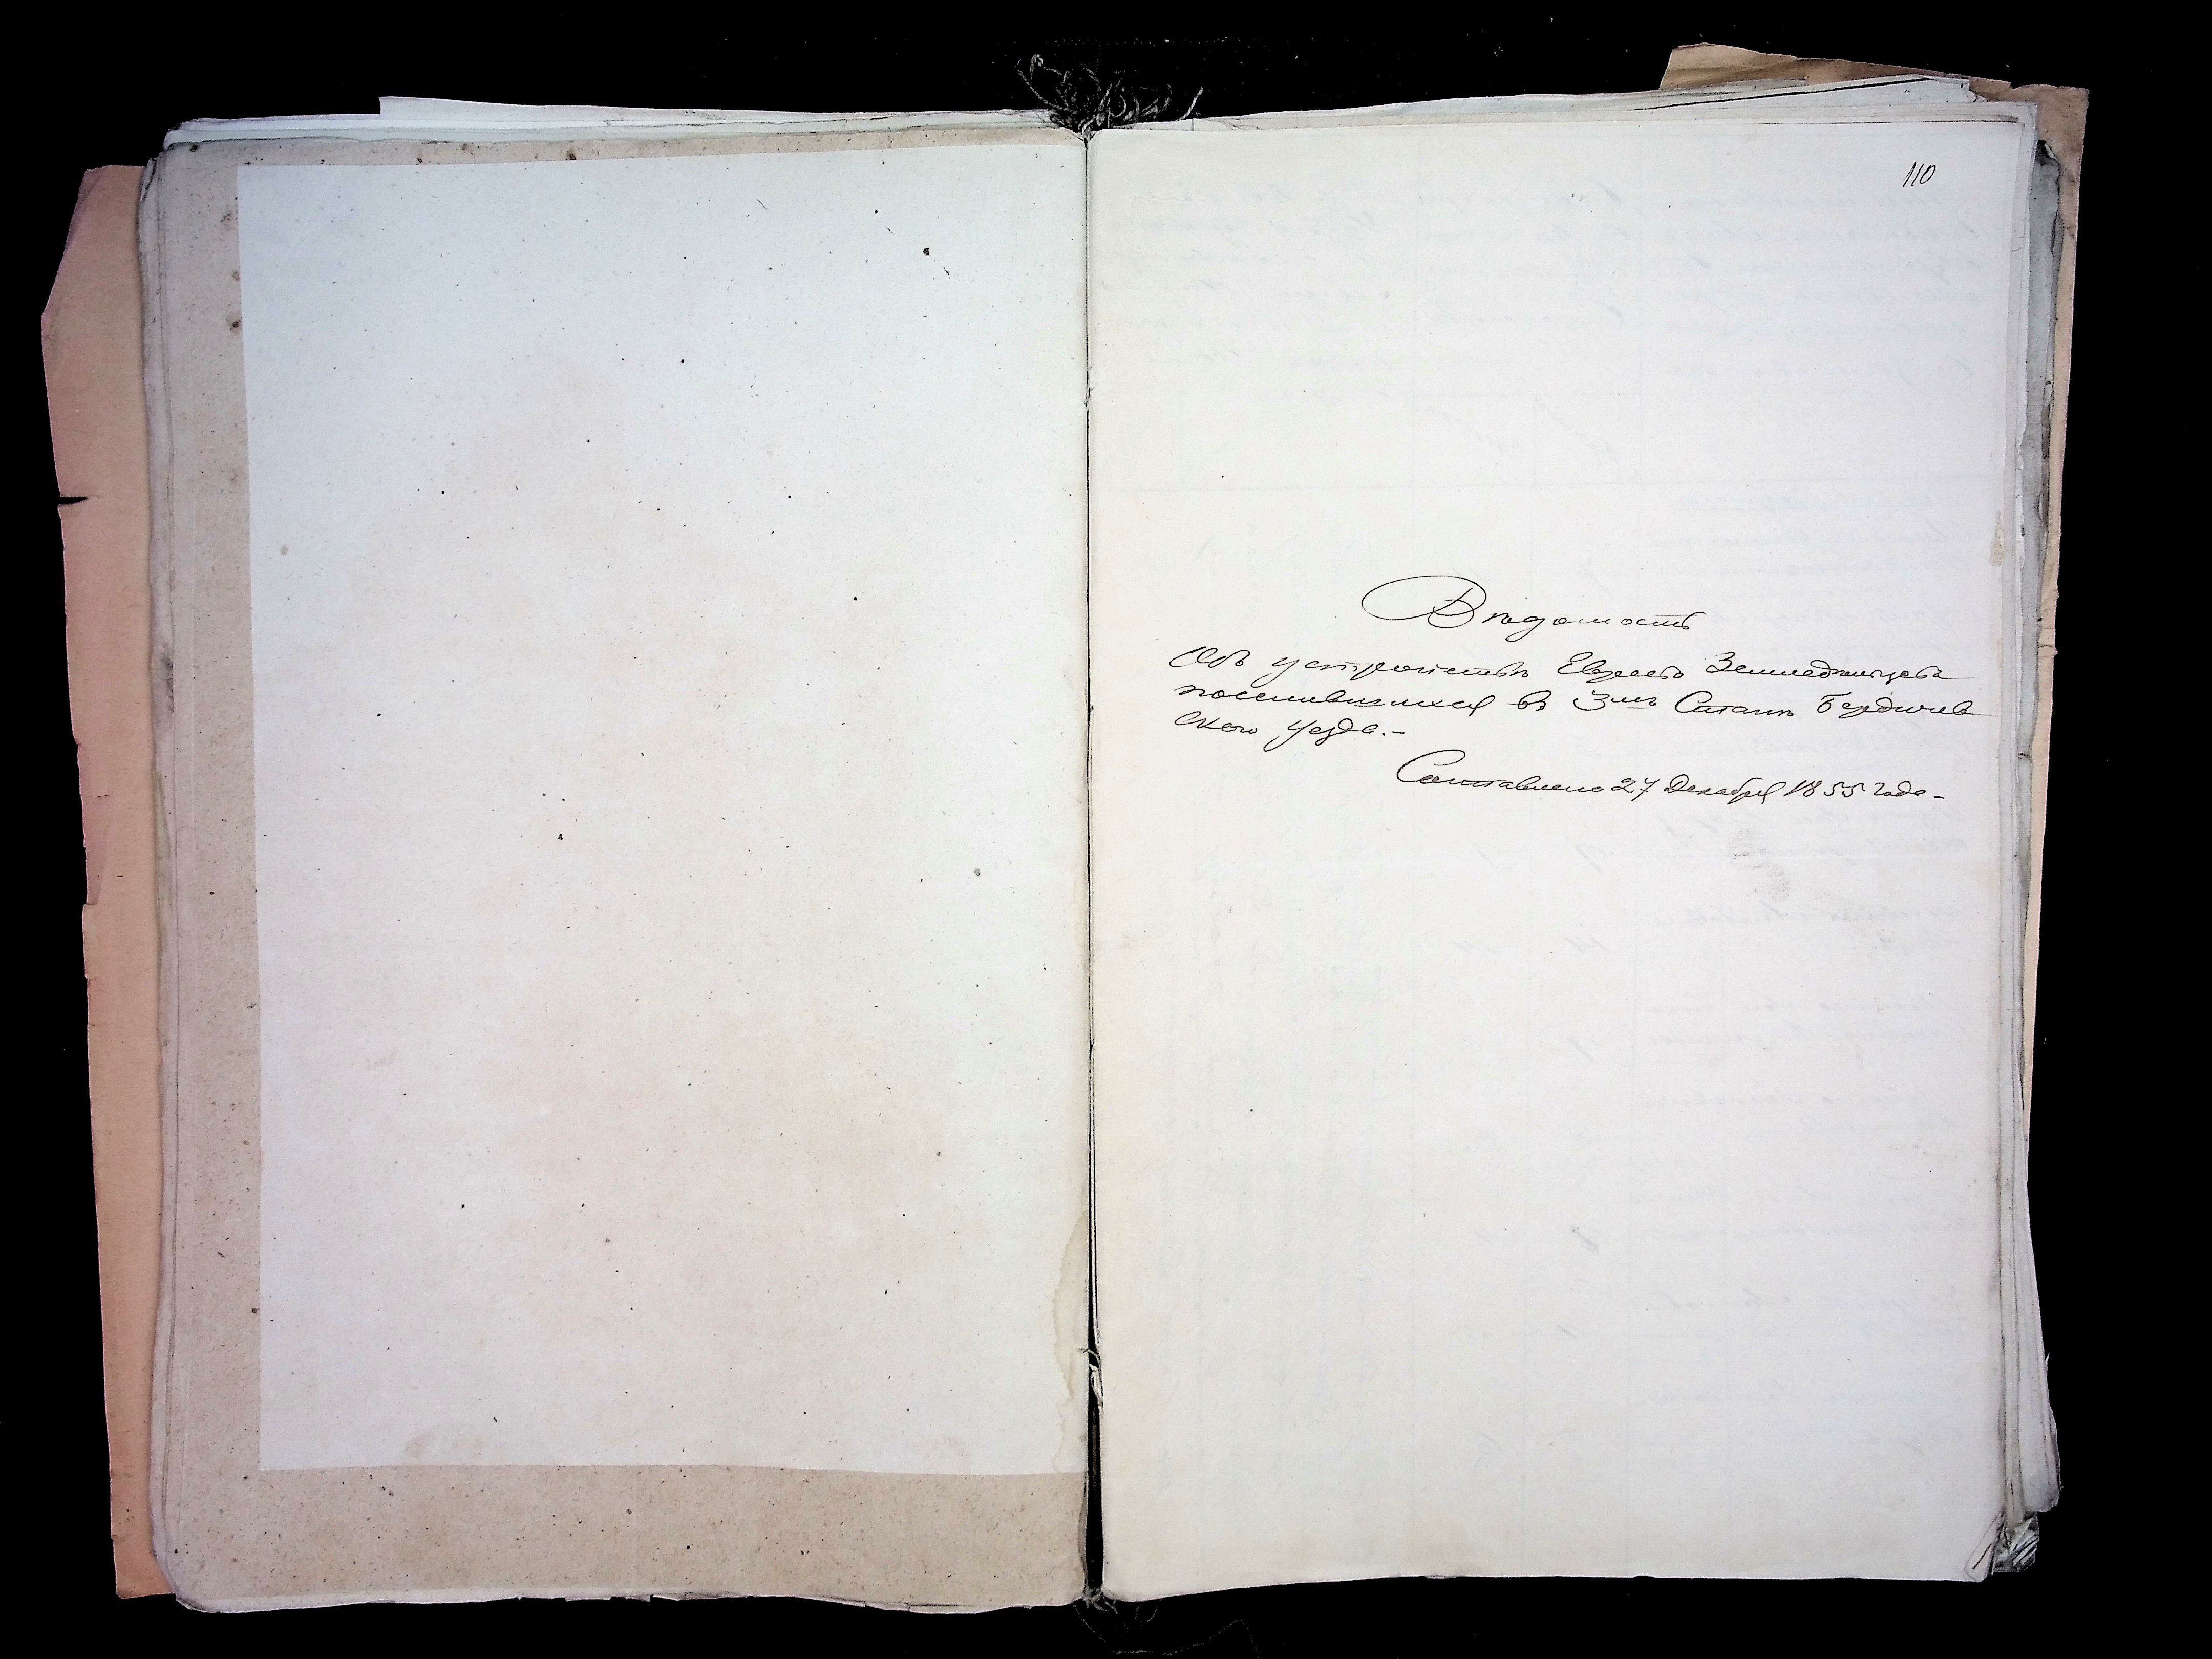 110
Вѣдомость
Объ устройствѣ Евреевъ Земледѣльцевъ
поселившихся въ Зmъ Сатанѣ Бердичев
скаго уезда.-
Составлено 27 Декабря 1855 года-